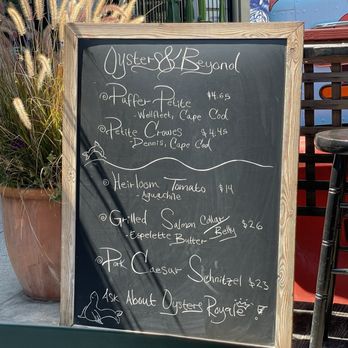 Oysters & Beyond
Puffer Petite $4.65
- Wellfleet, Cape Cod
Petite Crowes $4.45
- Dennis, Cape Cod
Heirloom Tomato $14
- Aguachile
Grilled Salmon Collar/Belly $26
- Espelette Butter
Pork Caesar Schnitzel $23
Ask About Oysters Royale